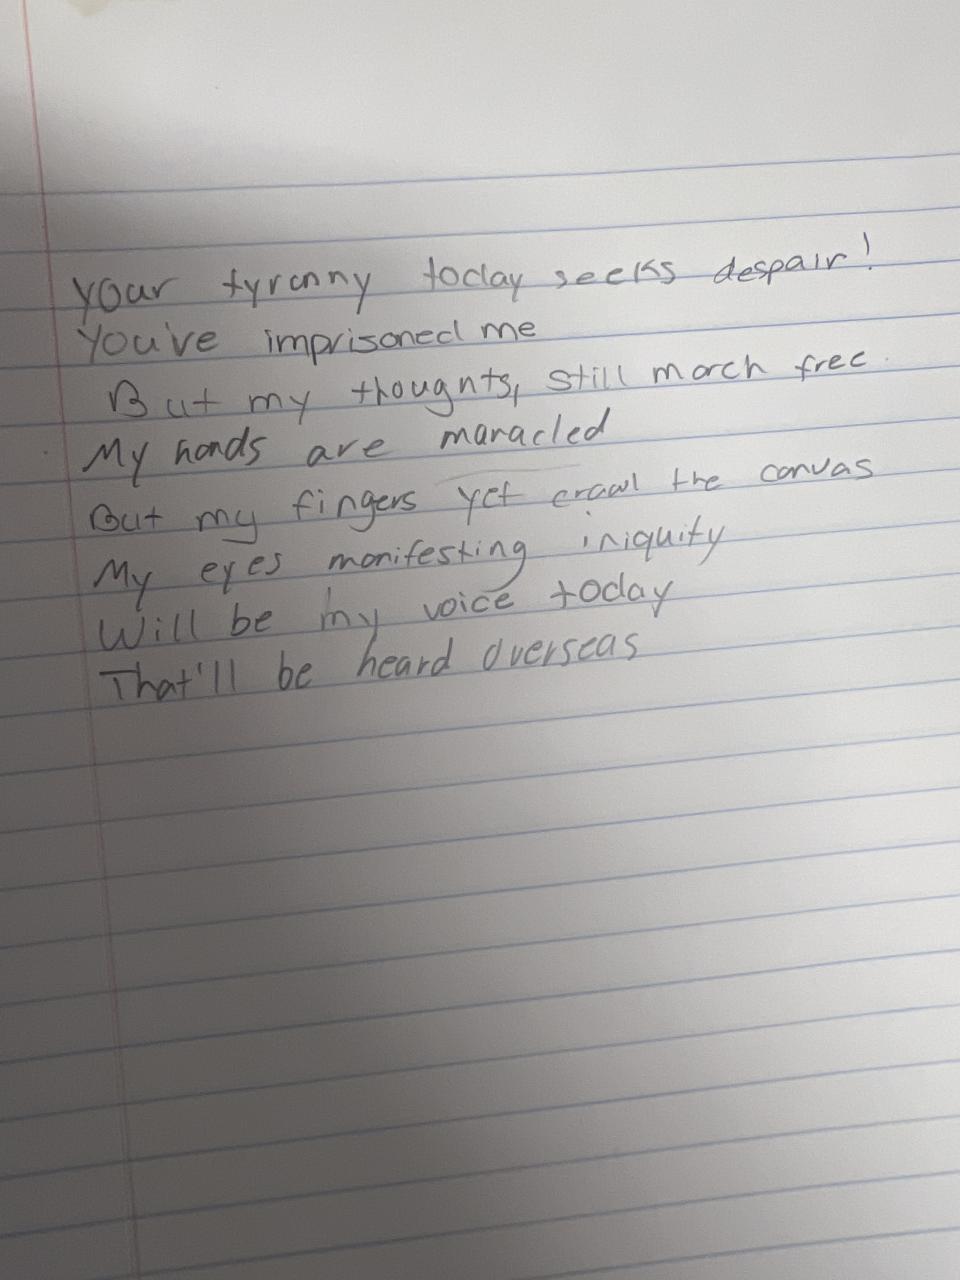 Your tyranny today seeks despair!
You've imprisoned me
But my thougnts, still march free.
My hands are manacled
But my fingers yet crawl the canvas
My eyes manifesting iniquity
Will be my voice today
That'll be heard overseas